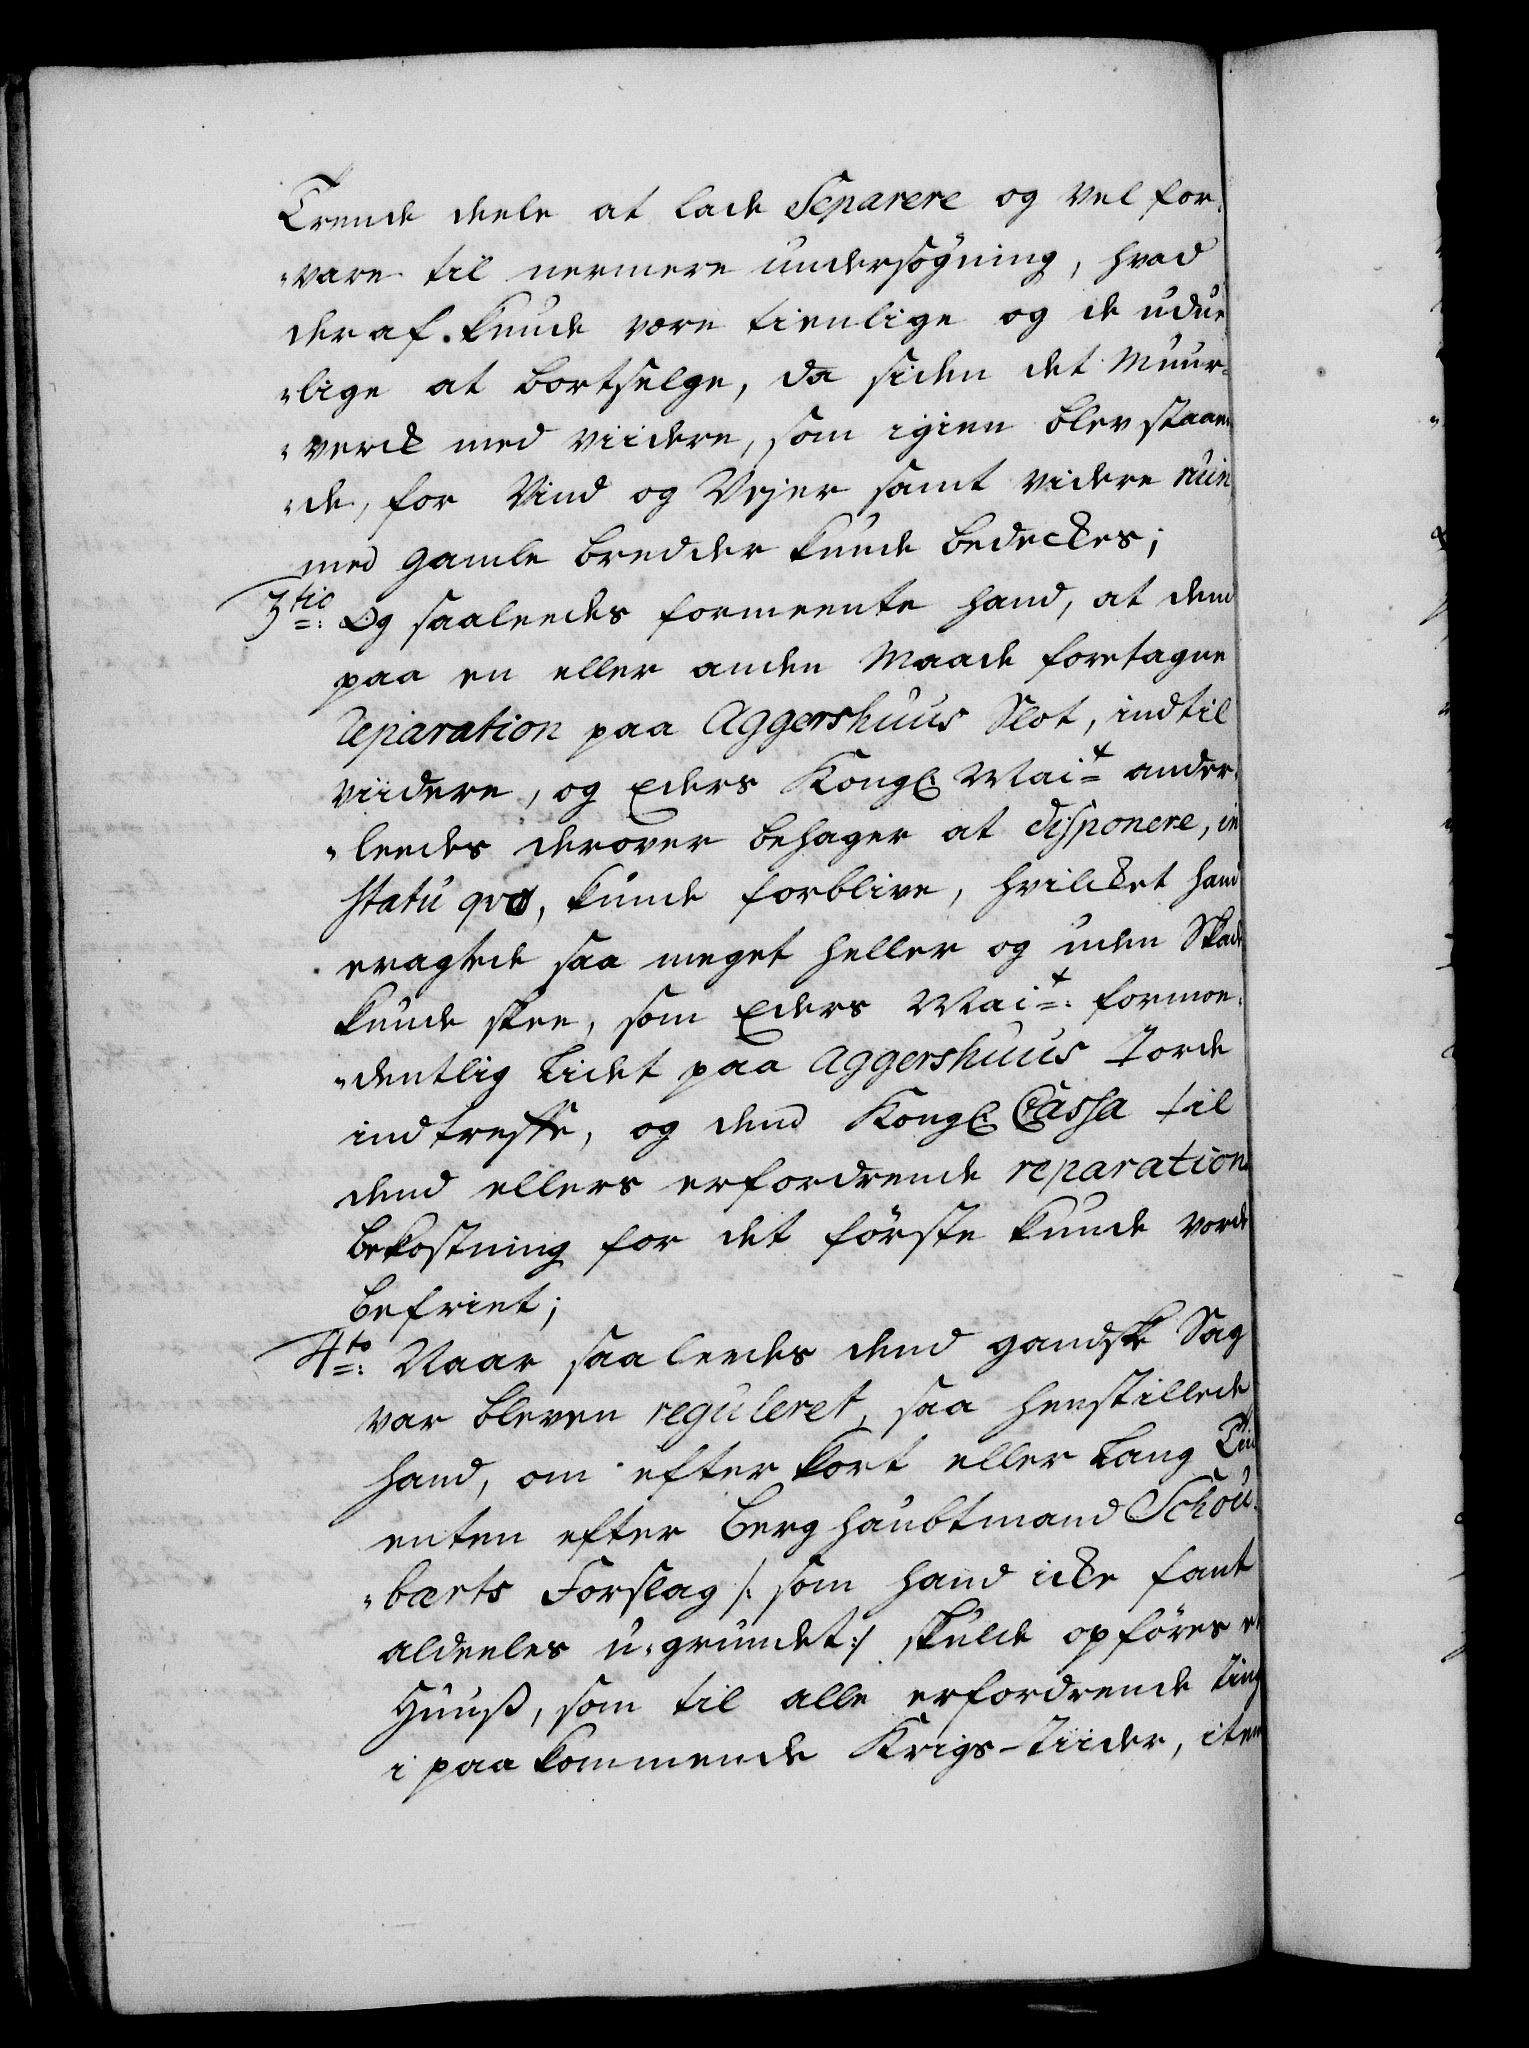 Trende deele at lade Separere og vel for¬
"vare til nermere undersøgning, hvad
deraf kunde være tienlige og de udue
"lige at bortselge, da siden det Muur¬
"verck med viidere, som igien blev staaen
"de, for Vind og Vejer samt videre ruin
med gamle bredder kunde bedeckes;
3tio: Og saaleedes formeente hand, at dend
paa en eller anden Maade foretagne
Reparation paa Aggershuus Slot, indtil
viidere, og Eders Kongl: Mait ander¬
"leedes derover behager at disponere, in
statu qvo, kunde forblive, hvilcket hand
eragtede saa meget heller og uden Skade
kunde skee, som Eders Mait: formoe¬
"dentlig Lidet paa Aggershuus Torde
indtreffe, og dend Kongl: Cassa til
dend ellers erfordrende reparations
bekostning for det første kunde vorde
befriet;
4to: Naar saaleedes dend gandske Sag
var bleven reguleret, saa henstillede
hand, om efter kort eller Lang Tiid
enten efter Berghaubtmand Schou¬
"bærts Forslag /: som hand icke fant
aldeeles u-grundet :/ skulde opføres et
Huuß, som til alle erfordrende Ting
i paakommende Krigs-Tiider, item